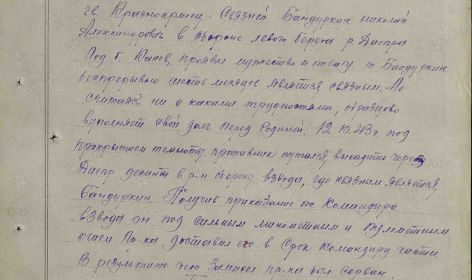 гв. Красноармеец. Связной Бандуркин Николай
Александрович в обороне левого берега р. Днепра
Под г. Канев, проявил мужество и отвагу. т. Бандуркин
беспрерывно шесть месяцев является связным. Не
считаясь ни с какими трудностями, образцово
выполняет свой долг перед Родиной. 12.10.43г. под
прикрытием темноты противник пытался высадить через
Днепр десант в р-н обороны взвода, где связным является
Бандуркин. Получив приказание от Командира
взвода он под сильным минометным и пулеметным
огнем пр-ка доставил его в срок Командиру части.
В результате чего замысел пр-ка был сорван